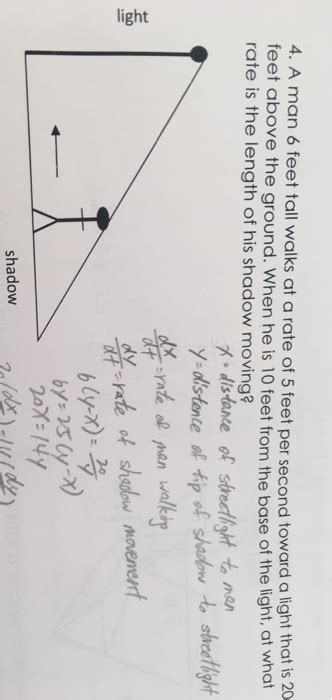 4. A man 6 feet tall walks at a rate of 5 feet per second toward a light that is 20
feet above the ground. When he is 10 feet from the base of the light, at what
rate is the length of his shadow moving?
light
shadow
x = distance of streetlight to man
y = distance of tip of shadow to streetlight
dx/dt = rate of man walking
dy/dt = rate of shadow movement
6(y-x) = 20/y
6y = 25(y-x)
20x = 14y